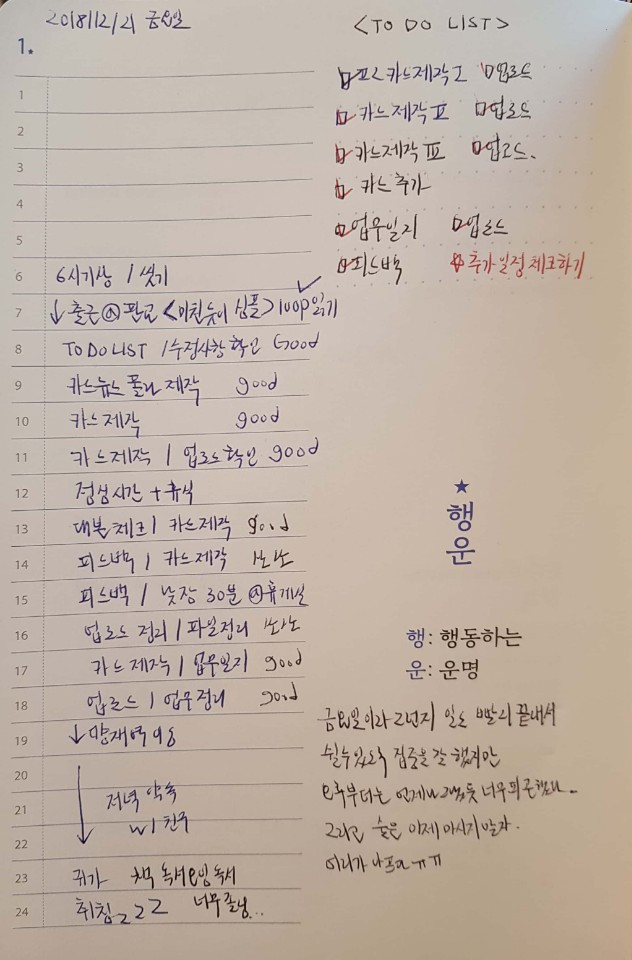 2018/12/21 금요일
1.
1
2
3
4
5
6 6시기상 / 씻기
7 ↓ 출근 @판교 <미친듯이 심플> 100p 읽기
8 TO DO LIST / 수정사항 확인 Good
9 카드뉴스 폴더 제작 good
10 카드제작 good
11 카드제작 / 업로드확인 good
12 점심시간 + 휴식
13 대본체크 / 카드제작 good
14 피드백 / 카드제작 쏘쏘
15 피드백 / 낮잠 30분 @휴게실
16 업로드 정리 / 파일정리 쏘쏘
17 카드제작 / 업무일지 good
18 업로드 / 업무정리 good
19 ↓ 양재역 이동
20
21 저녁 약속
22 w/ 친구
23 귀가 책 독서
24 취침 zzz 너무졸림...
<TO DO LIST>
카드제작 I 업로드
카드제작 II 업로드
카드제작 III 업로드.
카드 추가
업무일지 업로드
피드백 추가일정체크하기
★
행
운
행: 행동하는
운: 운명
금요일이라 그런지 일도 빨리 끝내서
쉴수있도록 집중을 잘 했지만
오후부터는 언제나 그렇듯 너무 피곤했다..
그리고 술은 이제 마시지말자.
머리가 아프다 ㅠㅠ